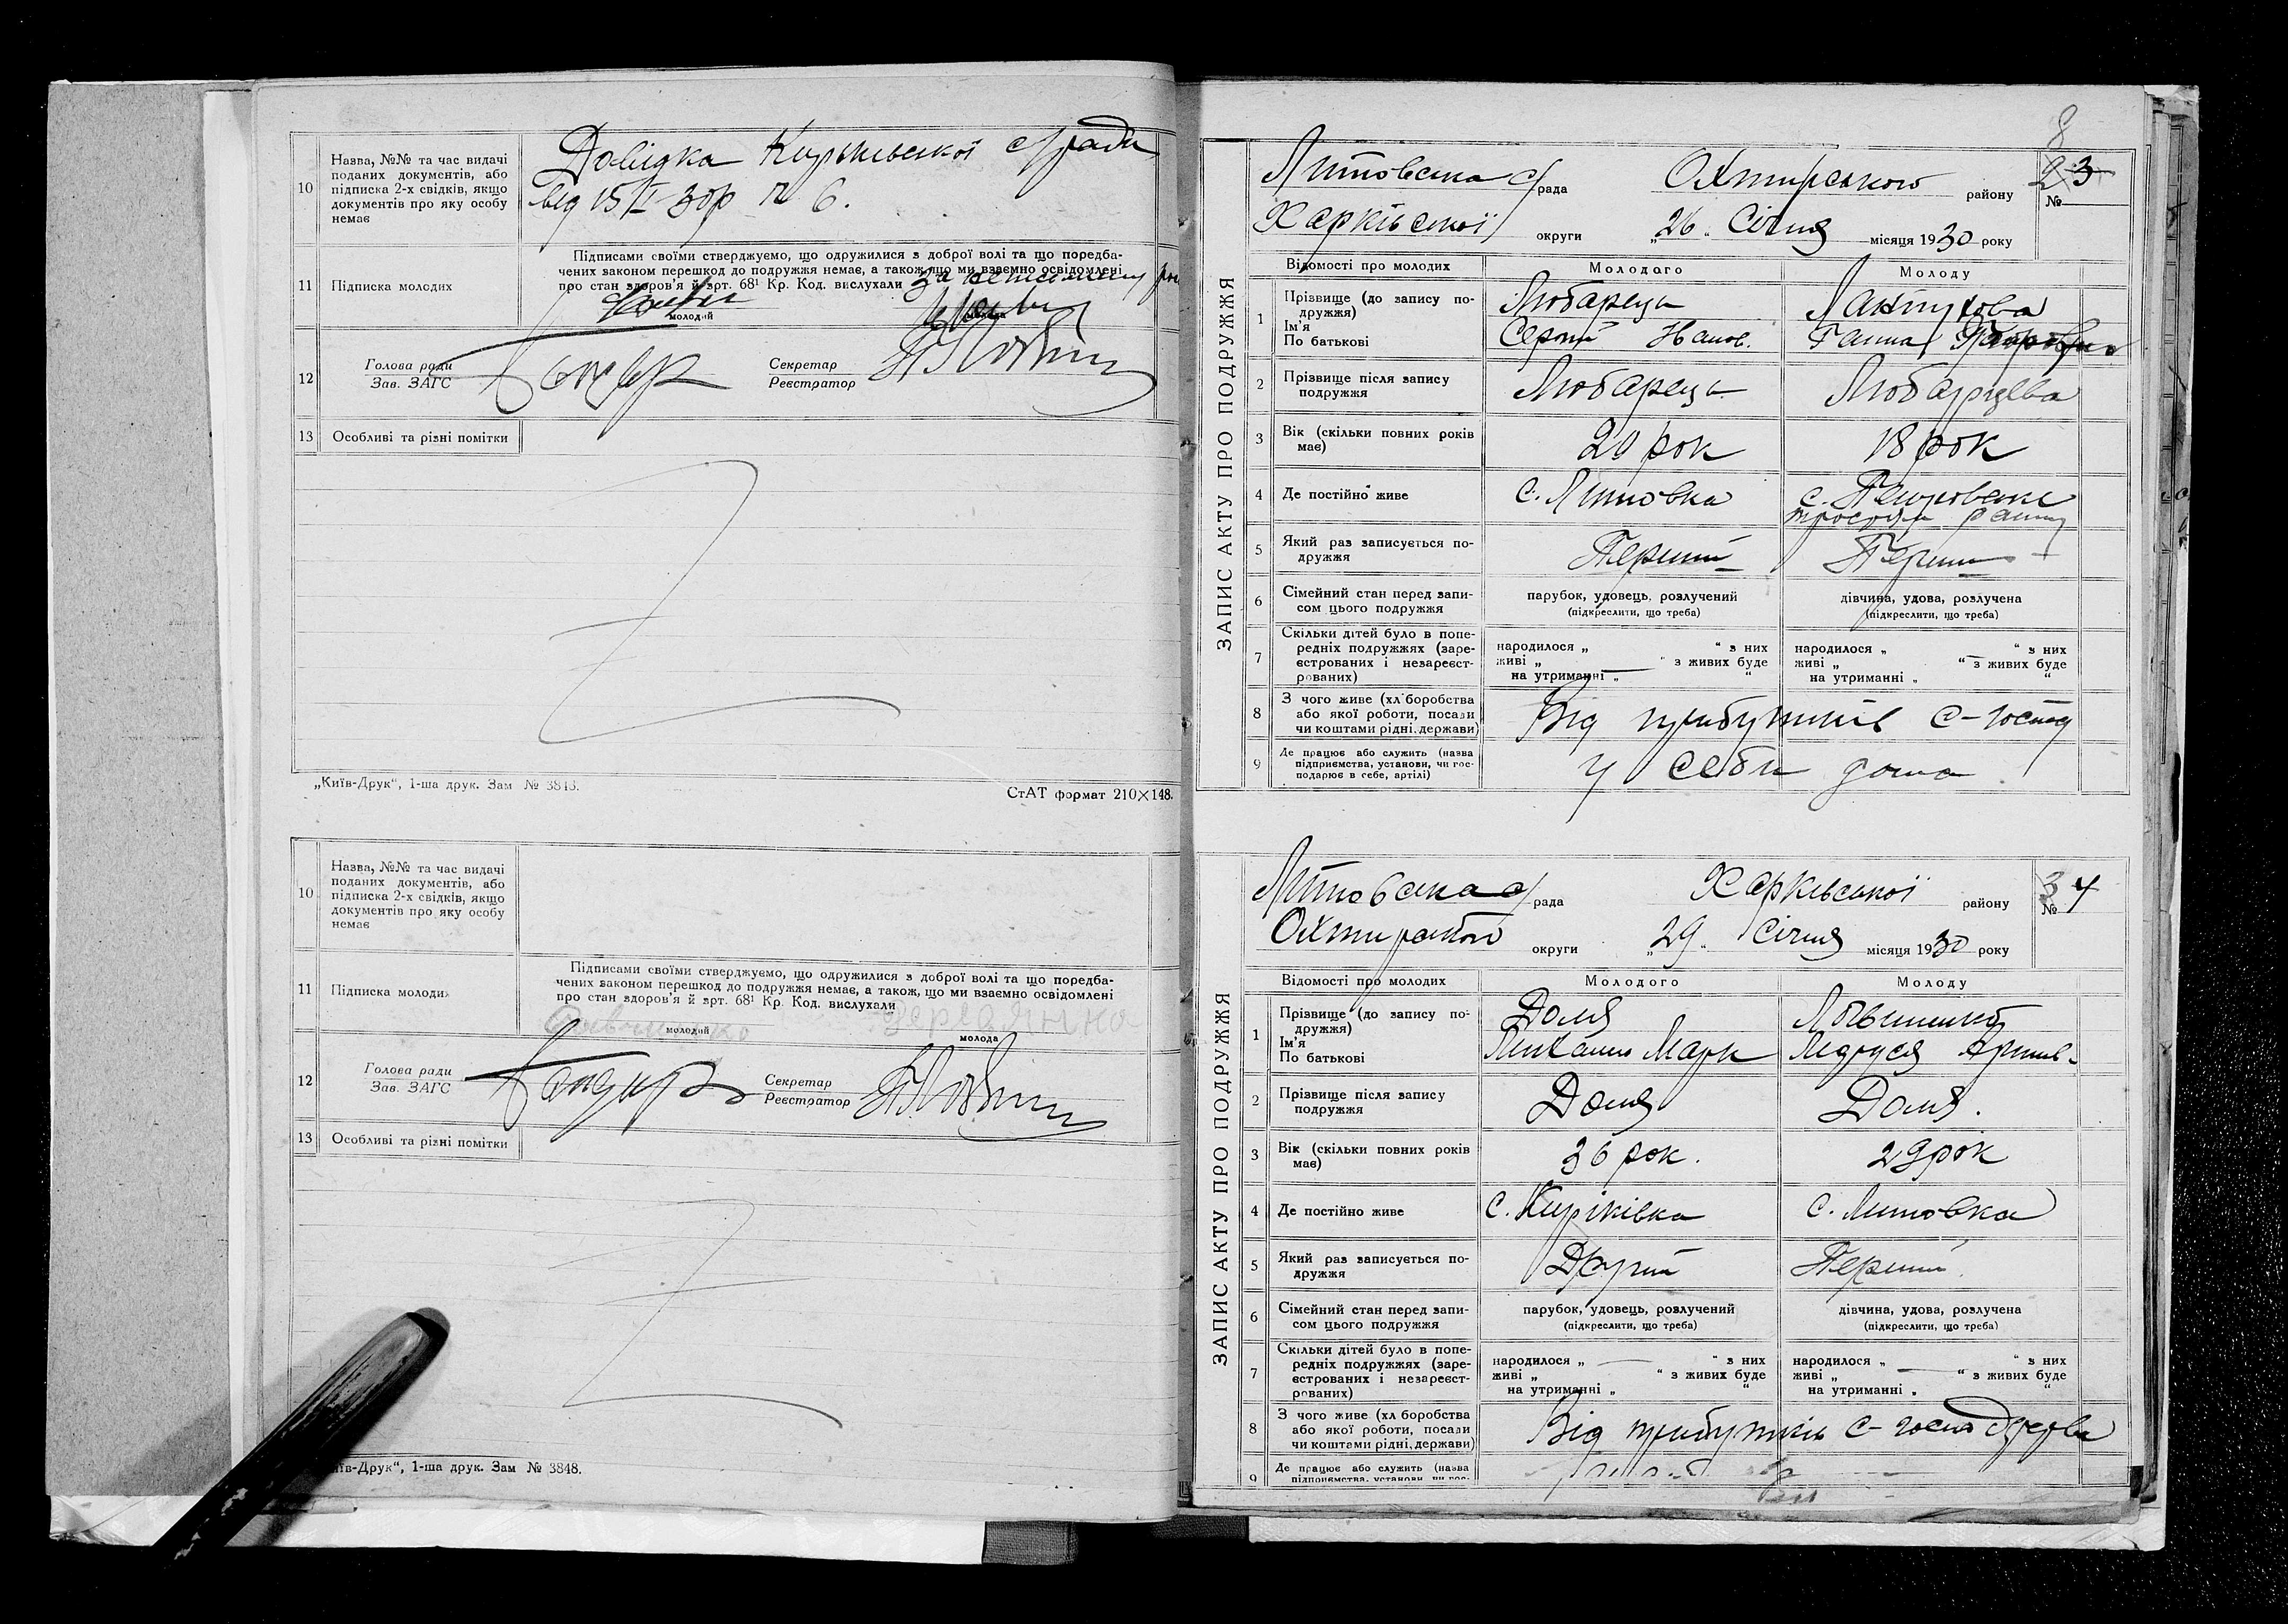 10
Назва, №№ та час видачі
поданих документів, або
підписка 2-х свідків, якщо
документів про яку особу
немає
Довідка с/ради
від 15/I 30р № 6.
11
Підписка молодих
Підписами своїми стверджуємо, що одружилися з доброї волі та що поредба-
чених законом перешкод до подружжя немає, а також, що ми взаємно освідомлені
про стан здоров'я й арт. 68¹ Кр. Код. вислухали
За
молодий
молода
12
Голова ради
Зав. ЗАГС
Секретар
Реєстратор
13
Особливі та різні помітки
„Київ-Друк“, 1-ша друк. Зам № 3848.
СтАТ формат 210×148.
10
Назва, №№ та час видачі
поданих документів, або
підписка 2-х свідків, якщо
документів про яку особу
немає
11
Підписка молодих
Підписами своїми стверджуємо, що одружилися з доброї волі та що поредба-
чених законом перешкод до подружжя немає, а також, що ми взаємно освідомлені
про стан здоров'я й арт. 68¹ Кр. Код. вислухали
молодий
молода
12
Голова ради
Зав. ЗАГС
Секретар
Реєстратор
13
Особливі та різні помітки
„Київ-Друк“, 1-ша друк. Зам № 3848.
8
ЗАПИС АКТУ ПРО ПОДРУЖЖЯ
Литовська с/рада Охтирського району
№ 23
Харківської округи „26. Січня місяця 1930 року
Відомості про молодих
Молодого
Молоду
1
Прізвище (до запису по-
дружжя)
Ім'я
По батькові
Любарець
Сергій Иванов.
Лактукова
Ганна
2
Прізвище після запису
подружжя
Любарець
Любарцева
3
Вік (скільки повних років
має)
20 рок
18 рок
4
Де постійно живе
с. Литовка
с.
5
Який раз записується по-
дружжя
Перший
Перший
6
Сімейний стан перед запи-
сом цього подружжя
парубок, удовець, розлучений
(підкреслити, що треба)
дівчина, удова, розлучена
(підкреслити, що треба)
7
Скільки дітей було в попе-
редніх подружжях (заре-
єстрованих і незареєст-
рованих)
народилося „ “ з них
живі „ “ з живих буде
на утриманні „ “
народилося „ “ з них
живі „ “ з живих буде
на утриманні „ “
8
З чого живе (хлˈборобства
або якої роботи, посади
чи коштами рідні, держави)
Від прибутків С-господ
9
Де працює або служить (назва
підприємства, установи, чи гос-
подарює в себе, артілі)
У себи дома
ЗАПИС АКТУ ПРО ПОДРУЖЖЯ
Литовська с/рада Харківської району
№ 34
Охтирського округи „29. Січня місяця 1930 року
Відомості про молодих
Молодого
Молоду
1
Прізвище (до запису по-
дружжя)
Ім'я
По батькові
Доля
Михайло Марк
2
Прізвище після запису
подружжя
Доля
Доля.
3
Вік (скільки повних років
має)
36 рок.
29 рок
4
Де постійно живе
с. Кириківка
с. Литовка
5
Який раз записується по-
дружжя
Другий
Перший
6
Сімейний стан перед запи-
сом цього подружжя
парубок, удовець, розлучений
(підкреслити, що треба)
дівчина, удова, розлучена
(підкреслити, що треба)
7
Скільки дітей було в попе-
редніх подружжях (заре-
єстрованих і незареєст-
рованих)
народилося „ “ з них
живі „ “ з живих буде
на утриманні „ “
народилося „ “ з них
живі „ “ з живих буде
на утриманні „ “
8
З чого живе (хл боробства
або якої роботи, посади
чи коштами рідні, держави)
Від прибутків С-господарства
9
Де працює або служить (назва
підприємства, установи, чи гос-